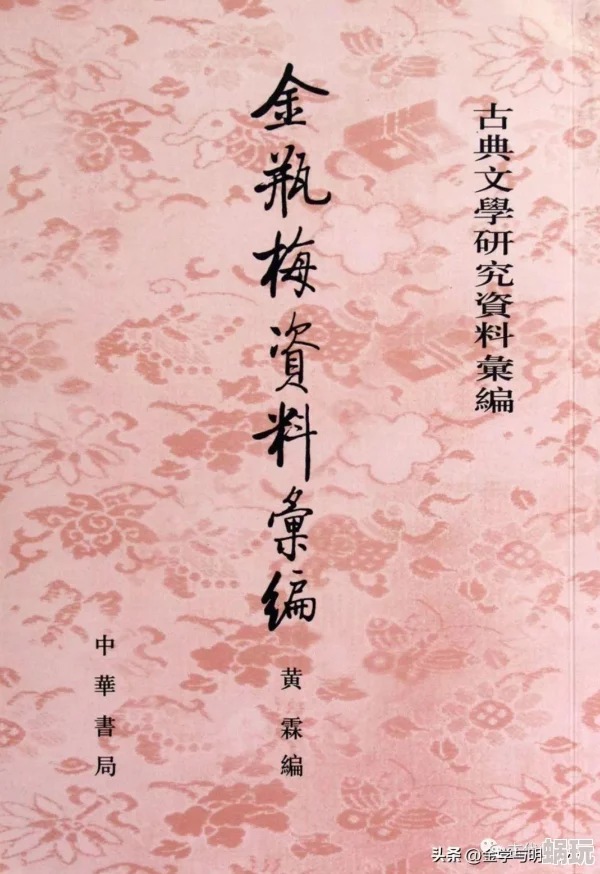 古典文學研究資料彙編
金瓶梅資料彙編
黄霖編
中華書局
头条 @金学与明
蜗玩